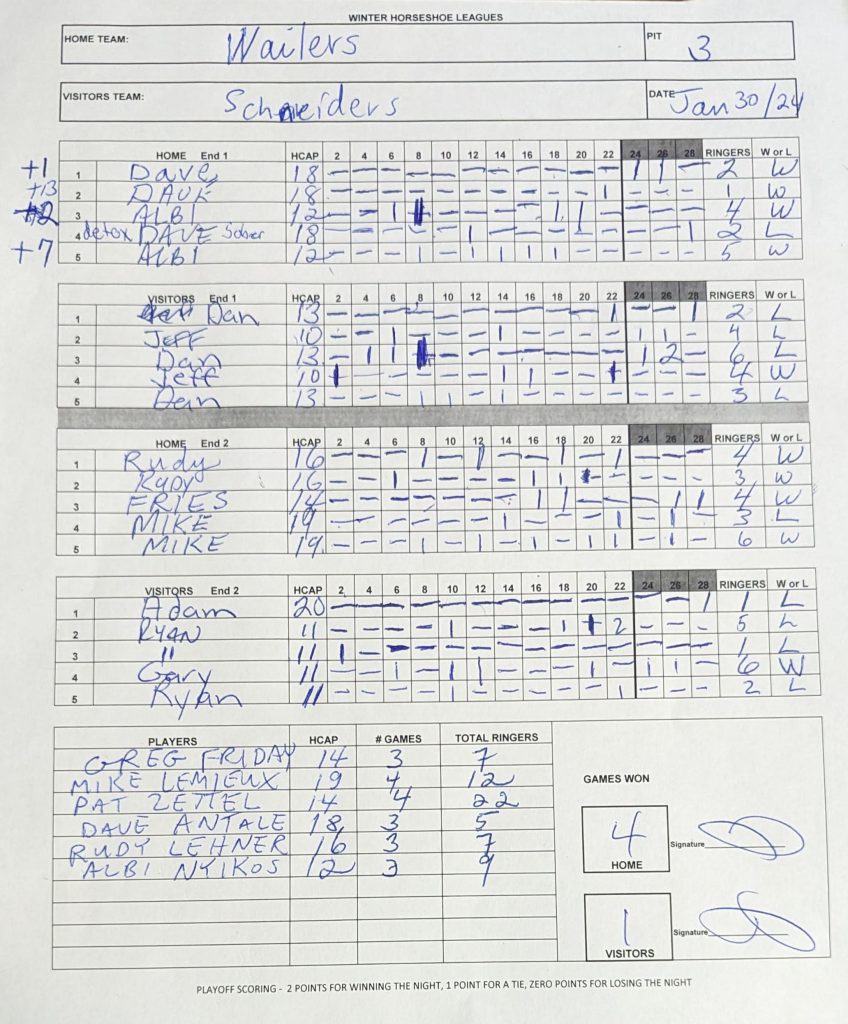 WINTER HORSESHOE LEAGUES
HOME TEAM: Wailers PIT 3
VISITORS TEAM: Schneiders DATE Jan 30/24
HOME End 1 HCAP 2 4 6 8 10 12 14 16 18 20 22 24 26 28 RINGERS W or L
+1 1 Dave 18 - - - - - - - - - - - 1 1 - 2 W
+13 2 DAVE 18 - - - - - - - - - - 1 - - - 1 W
3 ALBI 12 - - 1 1 - - - - 1 1 - - - - 4 W
4 detox DAVE Sober 18 - - - - - 1 - - - - - - - 1 2 L
+7 5 ALBI 12 - - - 1 - 1 1 1 1 - - - - - 5 W
VISITORS End 1 HCAP 2 4 6 8 10 12 14 16 18 20 22 24 26 28 RINGERS W or L
1 Dan 13 - - - - - - - - - - 1 - - 1 2 L
2 JEFF 10 - - 1 - - - 1 - - - - 1 1 - 4 L
3 Dan 13 - 1 1 1 - - - - - - - 1 2 - 6 L
4 Jeff 10 1 - - - - - 1 1 - - 1 - - - 4 W
5 Dan 13 - - - 1 1 - 1 - - - - - - - 3 L
HOME End 2 HCAP 2 4 6 8 10 12 14 16 18 20 22 24 26 28 RINGERS W or L
1 Rudy 16 - - - 1 - 1 - - 1 - 1 - - - 4 W
2 RUDY 16 - - 1 - - - - 1 1 - - - - - 3 W
3 FRIES 14 - - - - - - - 1 1 - - - 1 1 4 W
4 MIKE 19 - - - - - - 1 - - - 1 - 1 - 3 L
5 MIKE 19 - - - 1 - 1 - 1 - 1 1 - 1 - 6 W
VISITORS End 2 HCAP 2 4 6 8 10 12 14 16 18 20 22 24 26 28 RINGERS W or L
1 Adam 20 - - - - - - - - - - - - - 1 1 L
2 RYAN 11 - - - - 1 - - - 1 1 2 - - - 5 L
3 " 11 1 - - - - - - - - - - - - - 1 L
4 Gary 11 - - 1 - 1 1 - - - 1 - 1 1 - 6 W
5 Ryan 11 - - - - 1 - - - - - 1 - - - 2 L
PLAYERS HCAP # GAMES TOTAL RINGERS
GREG FRIDAY 14 3 7
MIKE LEMIEUX 19 4 12
PAT ZETTEL 14 4 22
DAVE ANTALE 18 3 5
RUDY LEHNER 16 3 7
ALBI NYIKOS 12 3 9
GAMES WON
4
HOME
Signature
1
VISITORS
Signature
PLAYOFF SCORING - 2 POINTS FOR WINNING THE NIGHT, 1 POINT FOR A TIE, ZERO POINTS FOR LOSING THE NIGHT